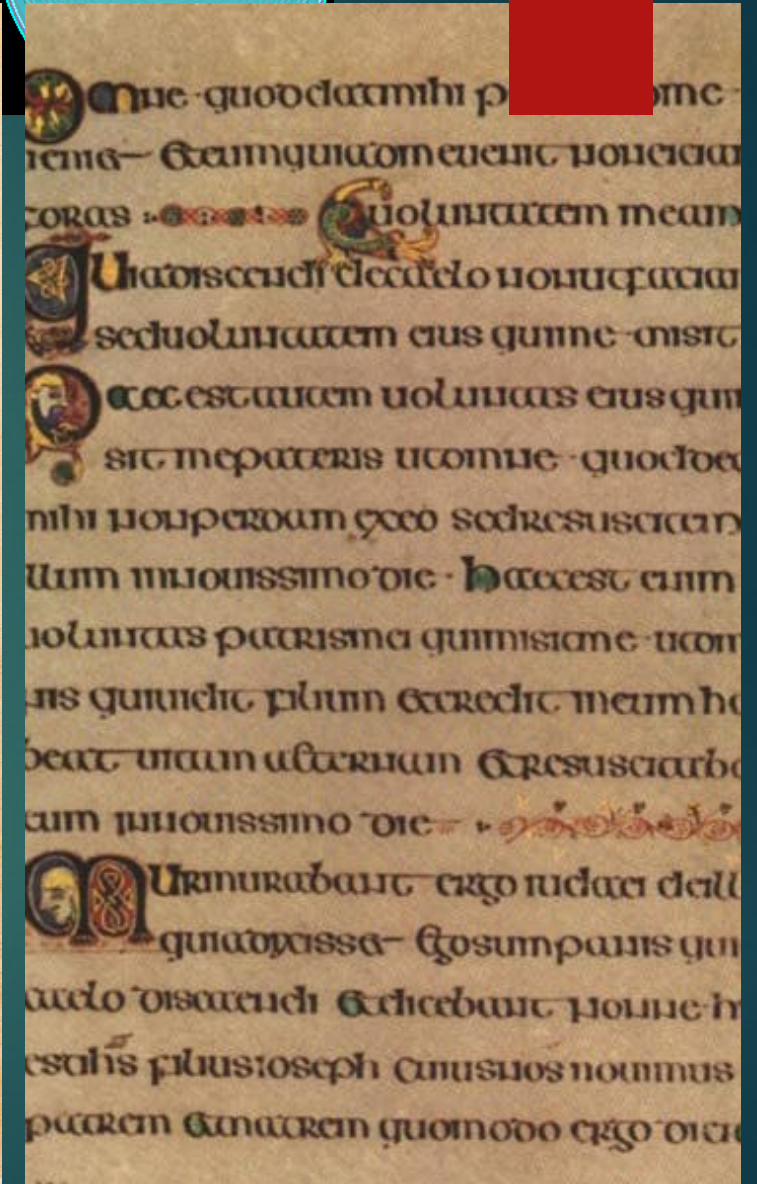 Omne · quod dat mihi p me ·
ueniet Et eum qui ad me uenit non eiciam
foras uoluntatem meam
Quia discendi de caelo non ut faciam
sed uoluntatem eius qui me · misit
Haec est autem uoluntas eius qui mi
sit me pateris ut omne · quod de
mihi non perdam ex eo sed resuscitem
illum in nouissimo die · haec est enim
uoluntas patris mei qui misit me · ut om
nis qui uidit filium et credit in eum ha
beat uitam aeternam et resuscitabo
eum in nouissimo die
Murmurabant ergo iudaei de ill
quia dixisset Ego sum panis qui
caelo discendi et dicebant nonne · h
est ihs filius ioseph cuius nos nouimus
patrem et matrem quomodo ergo dici